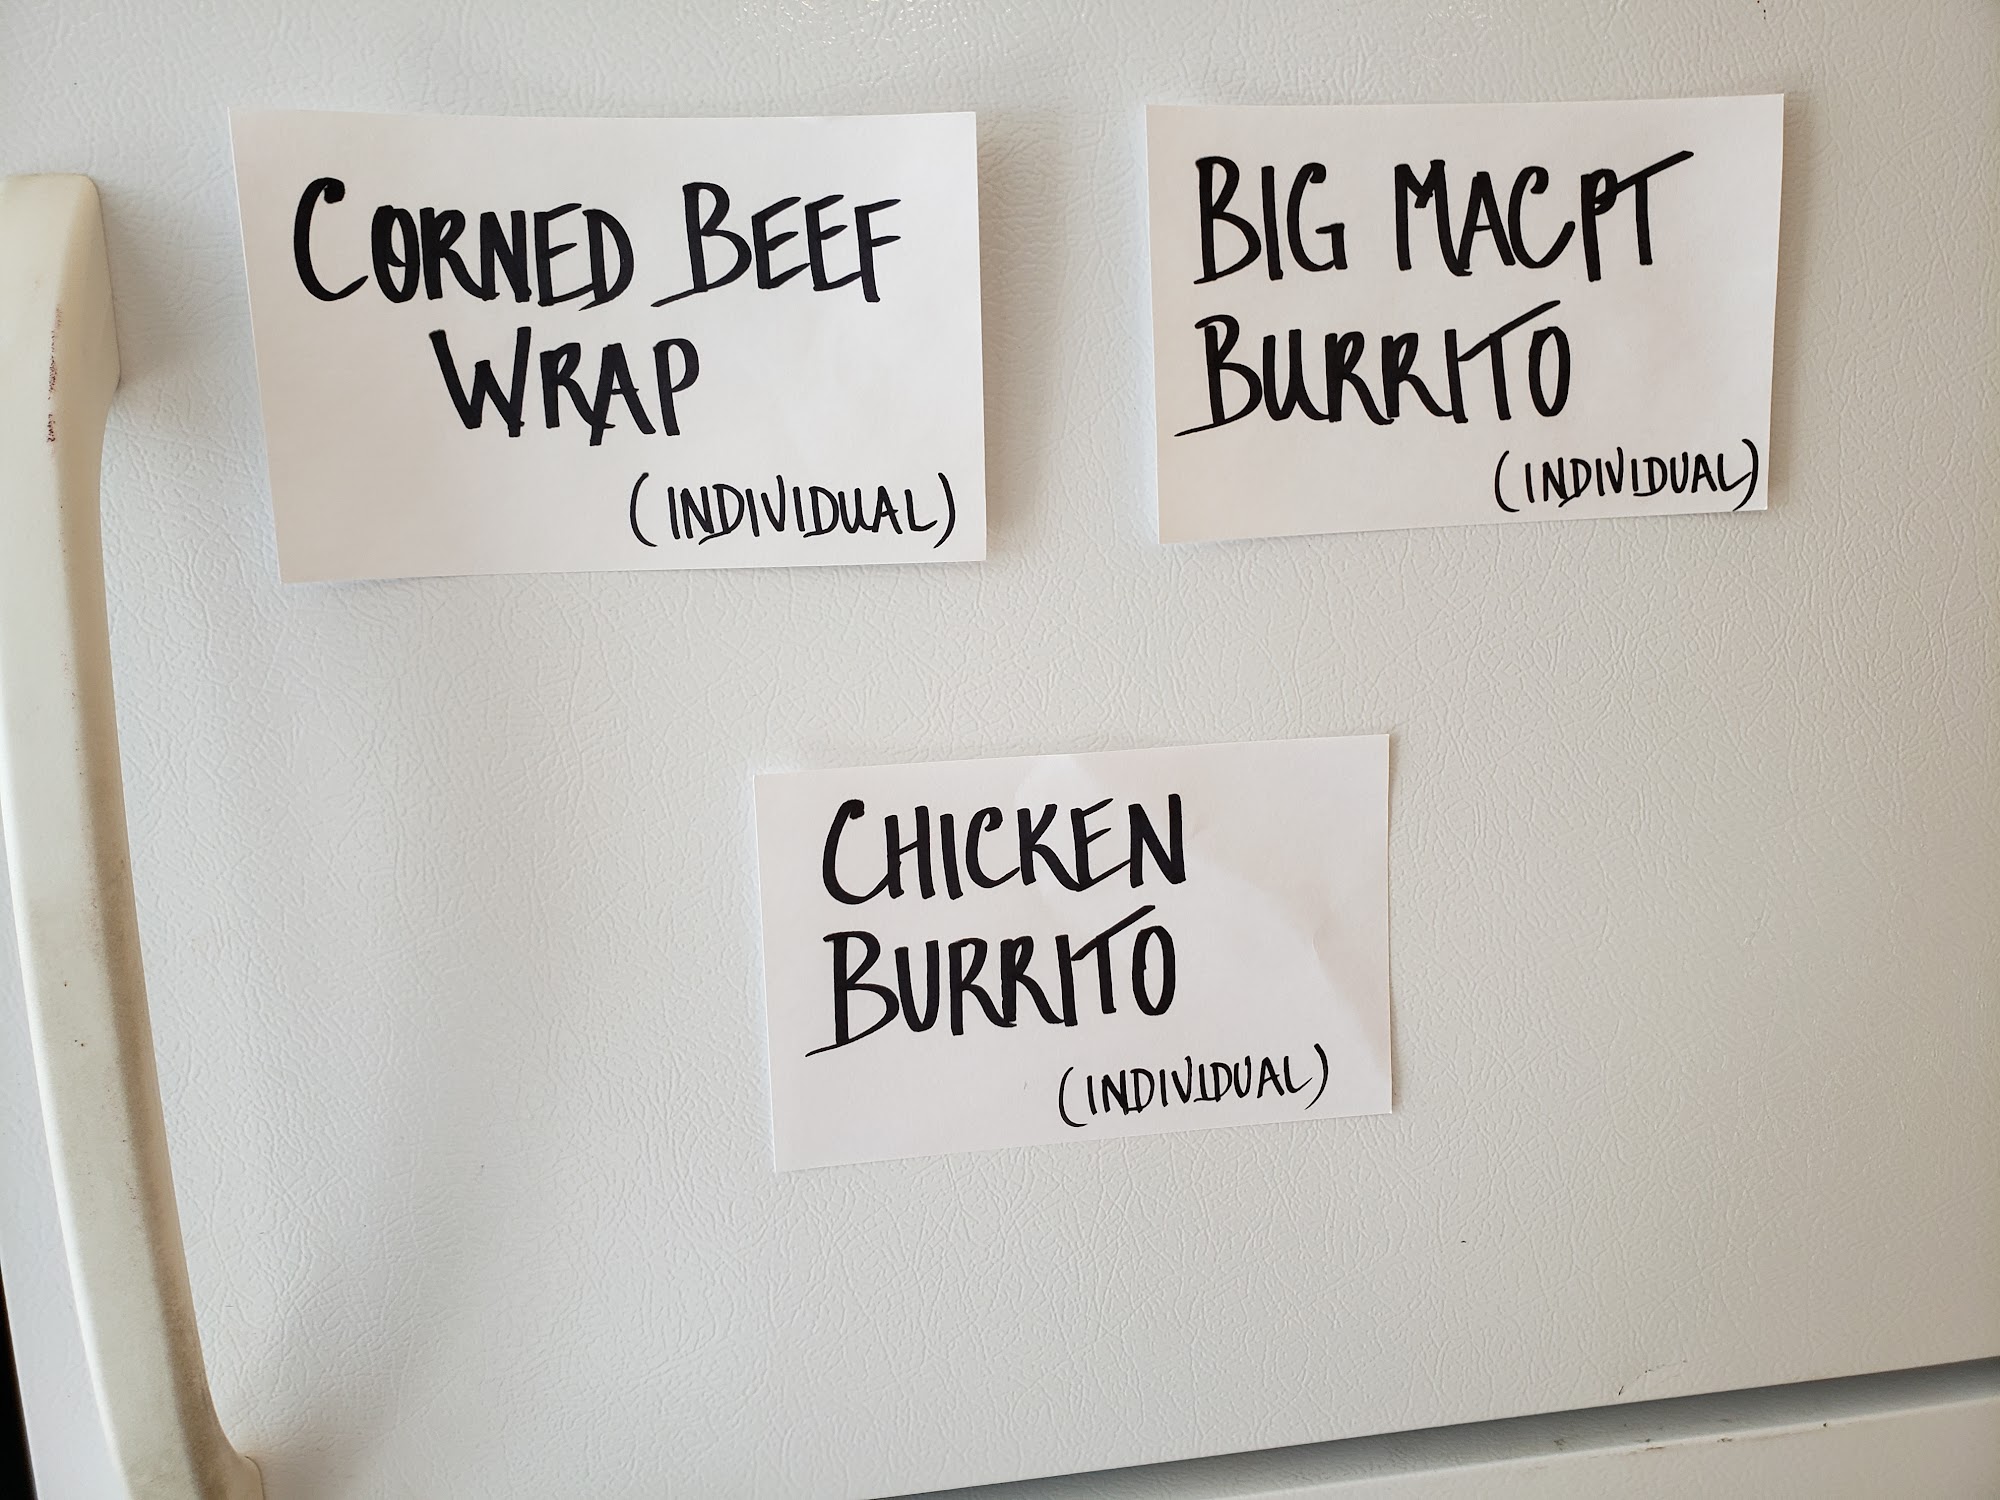 CORNED BEEF
WRAP
(INDIVIDUAL)
BIG MACPT
BURRITO
(INDIVIDUAL)
CHICKEN
BURRITO
(INDIVIDUAL)